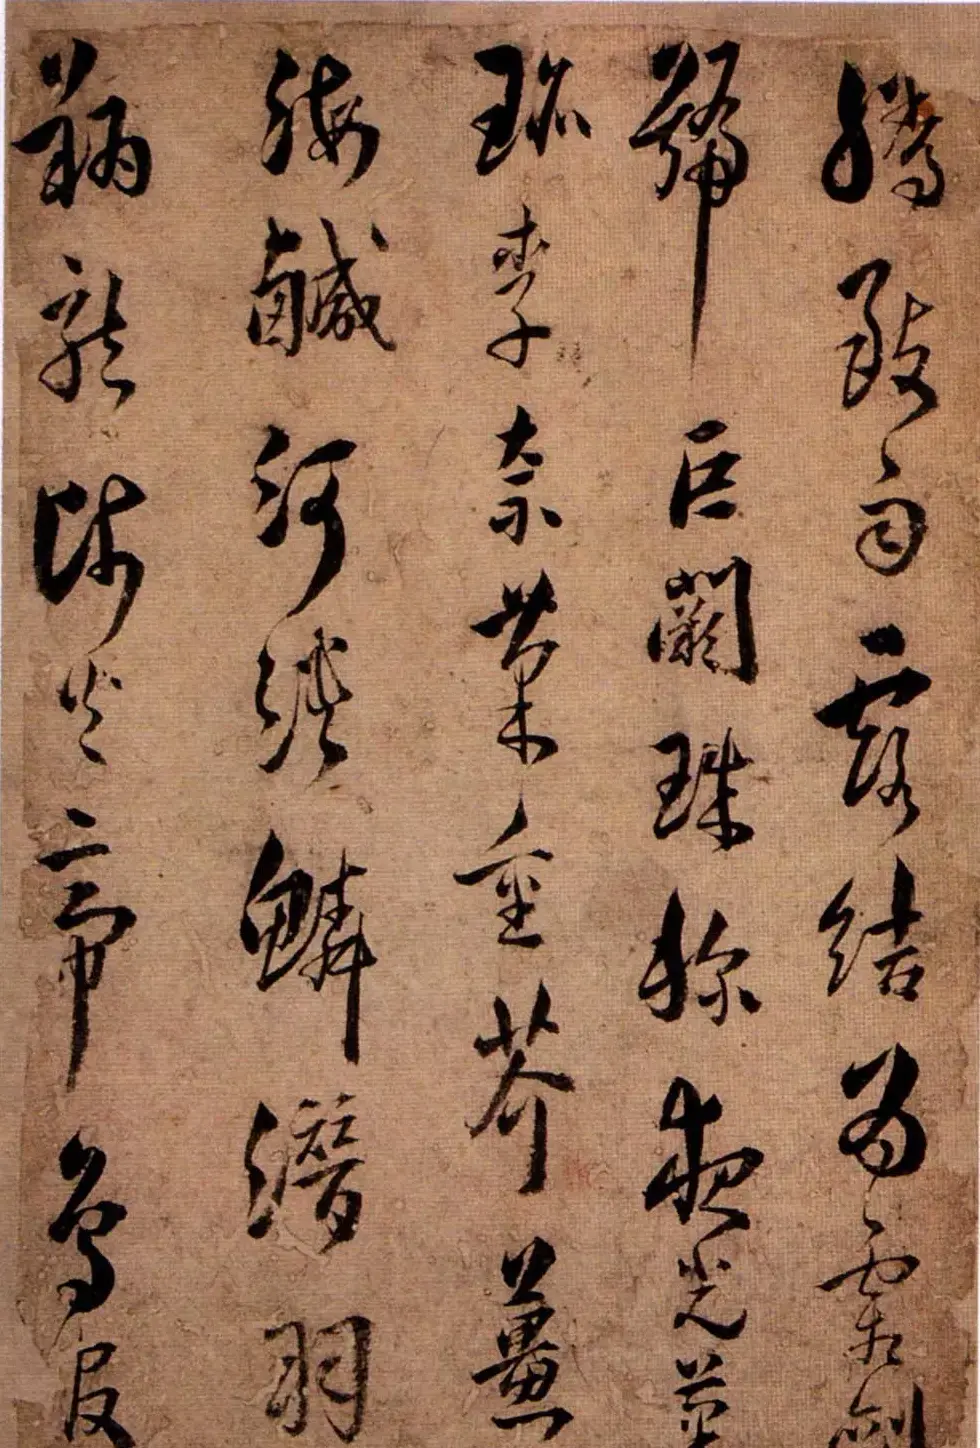 騰致雨露結為霜劍
號巨闕珠稱夜光菓
珎李柰菜重芥薑
海鹹河淡鱗潛羽
翔龍師火帝鳥官